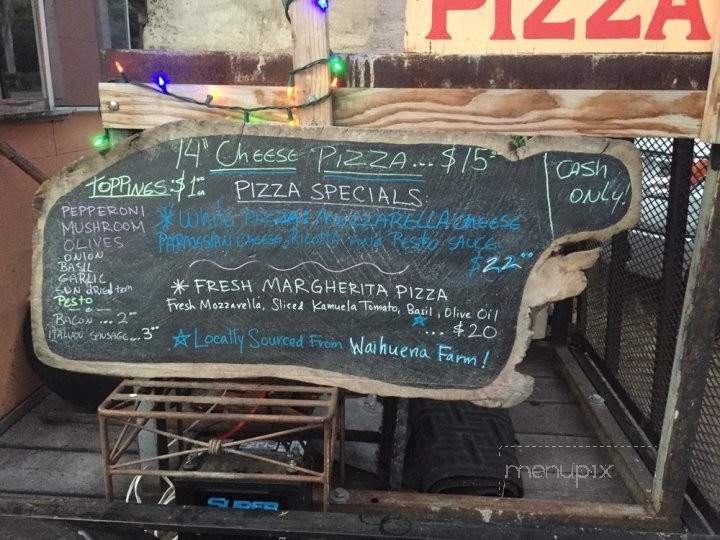 PIZZA
14" CHEESE PIZZA... $15
CASH
ONLY!
TOPPINGS: $1.00 ea
PIZZA SPECIALS
PEPPERONI
MUSHROOM
OLIVES
ONION
BASIL
GARLIC
SUN dried tom
Pesto
BACON ... 2
ITALIAN SAUSAGE... 3
* White PIZZA: MOZZARELLA CHEESE
PARMESAN CHEESE, Ricotta AND PESTO SAUCE
$22
* FRESH MARGHERITA PIZZA
Fresh Mozzarella, Sliced Kamuela Tomato, Basil, Olive Oil
... $20
Locally Sourced From Waihuena Farm!
SUPER
menupix